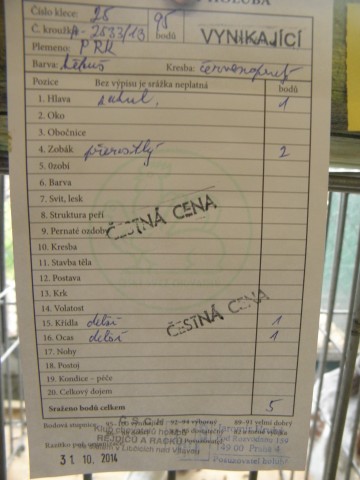 HOLUBA
Číslo klece: 25 95 VYNIKAJÍCÍ
Č. kroužku A-2533/13 bodů
Plemeno: PRK
Barva: Kresba:
Pozice Bez výpisu je srážka neplatná bodů
1. Hlava 1
2. Oko
3. Obočnice
4. Zobák přerostlý 2
5. Ozobí
6. Barva
7. Svit, lesk
8. Struktura peří
9. Pernaté ozdoby
ČESTNÁ CENA
10. Kresba
11. Stavba těla
12. Postava
13. Krk
14. Volatost
ČESTNÁ CENA
15. Křídla delší 1
16. Ocas delší 1
17. Nohy
18. Postoj
19. Kondice – péče
20. Celkový dojem
Sraženo bodů celkem 5
Bodová stupnice: 92–94 výborný 89–91 velmi dobrý
REJDIČŮ A RAČKŮ
Razítko
31 10. 2014
149 00 Praha 4
Posuzovatel holubů